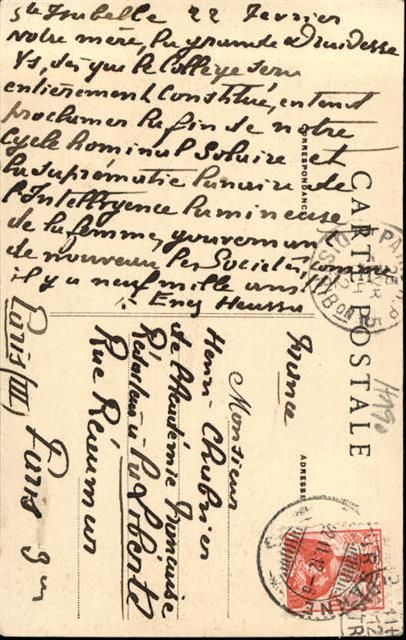 Ste Isabelle 22 Fevrier
Notre mère, la grande Druidesse
Ys, dès que le Collège sera
entièrement Constitué, entend
proclamer la fin de notre
Cycle hominal Solaire et
la suprématie lunaire de
l'Intelligence lumineuse
de la femme, gouvernant
de nouveau les Sociétés, comme
il y a neuf mille ans!
CARTE POSTALE
CORRESPONDANCE
ADRESSE
Monsieur
Henri Chabrier
de l'Académie Française
Rédacteur à la Liberté
Rue Réaumur
Paris (III)
France